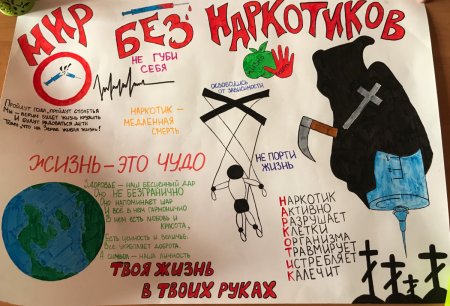 МИР БЕЗ НАРКОТИКОВ
НЕ ГУБИ
СЕБЯ
ОСВОБОДИСЬ
ОТ ЗАВИСИМОСТИ
Пройдут года, пройдут столетья
Мы верим будет жизнь кружить
И будут радоваться дети
Тому, что на Земле живёт жизнь!
НАРКОТИК –
МЕДЛЕННАЯ
СМЕРТЬ
НЕ ПОРТИ
ЖИЗНЬ
ЖИЗНЬ – ЭТО ЧУДО
Здоровье – наш бесценный дар
Оно НЕ БЕЗГРАНИЧНО
Оно напоминает шар
И всё в нём гармонично
В нём есть любовь и
красота,
Есть ценность и величье.
Все укрепляет доброта.
А символ – наша личность
НАРКОТИК
АКТИВНО
РАЗРУШАЕТ
КЛЕТКИ
ОРГАНИЗМА
ТРАВМИРУЕТ
ИСТРЕБЛЯЕТ
КАЛЕЧИТ
ТВОЯ ЖИЗНЬ
В ТВОИХ РУКАХ